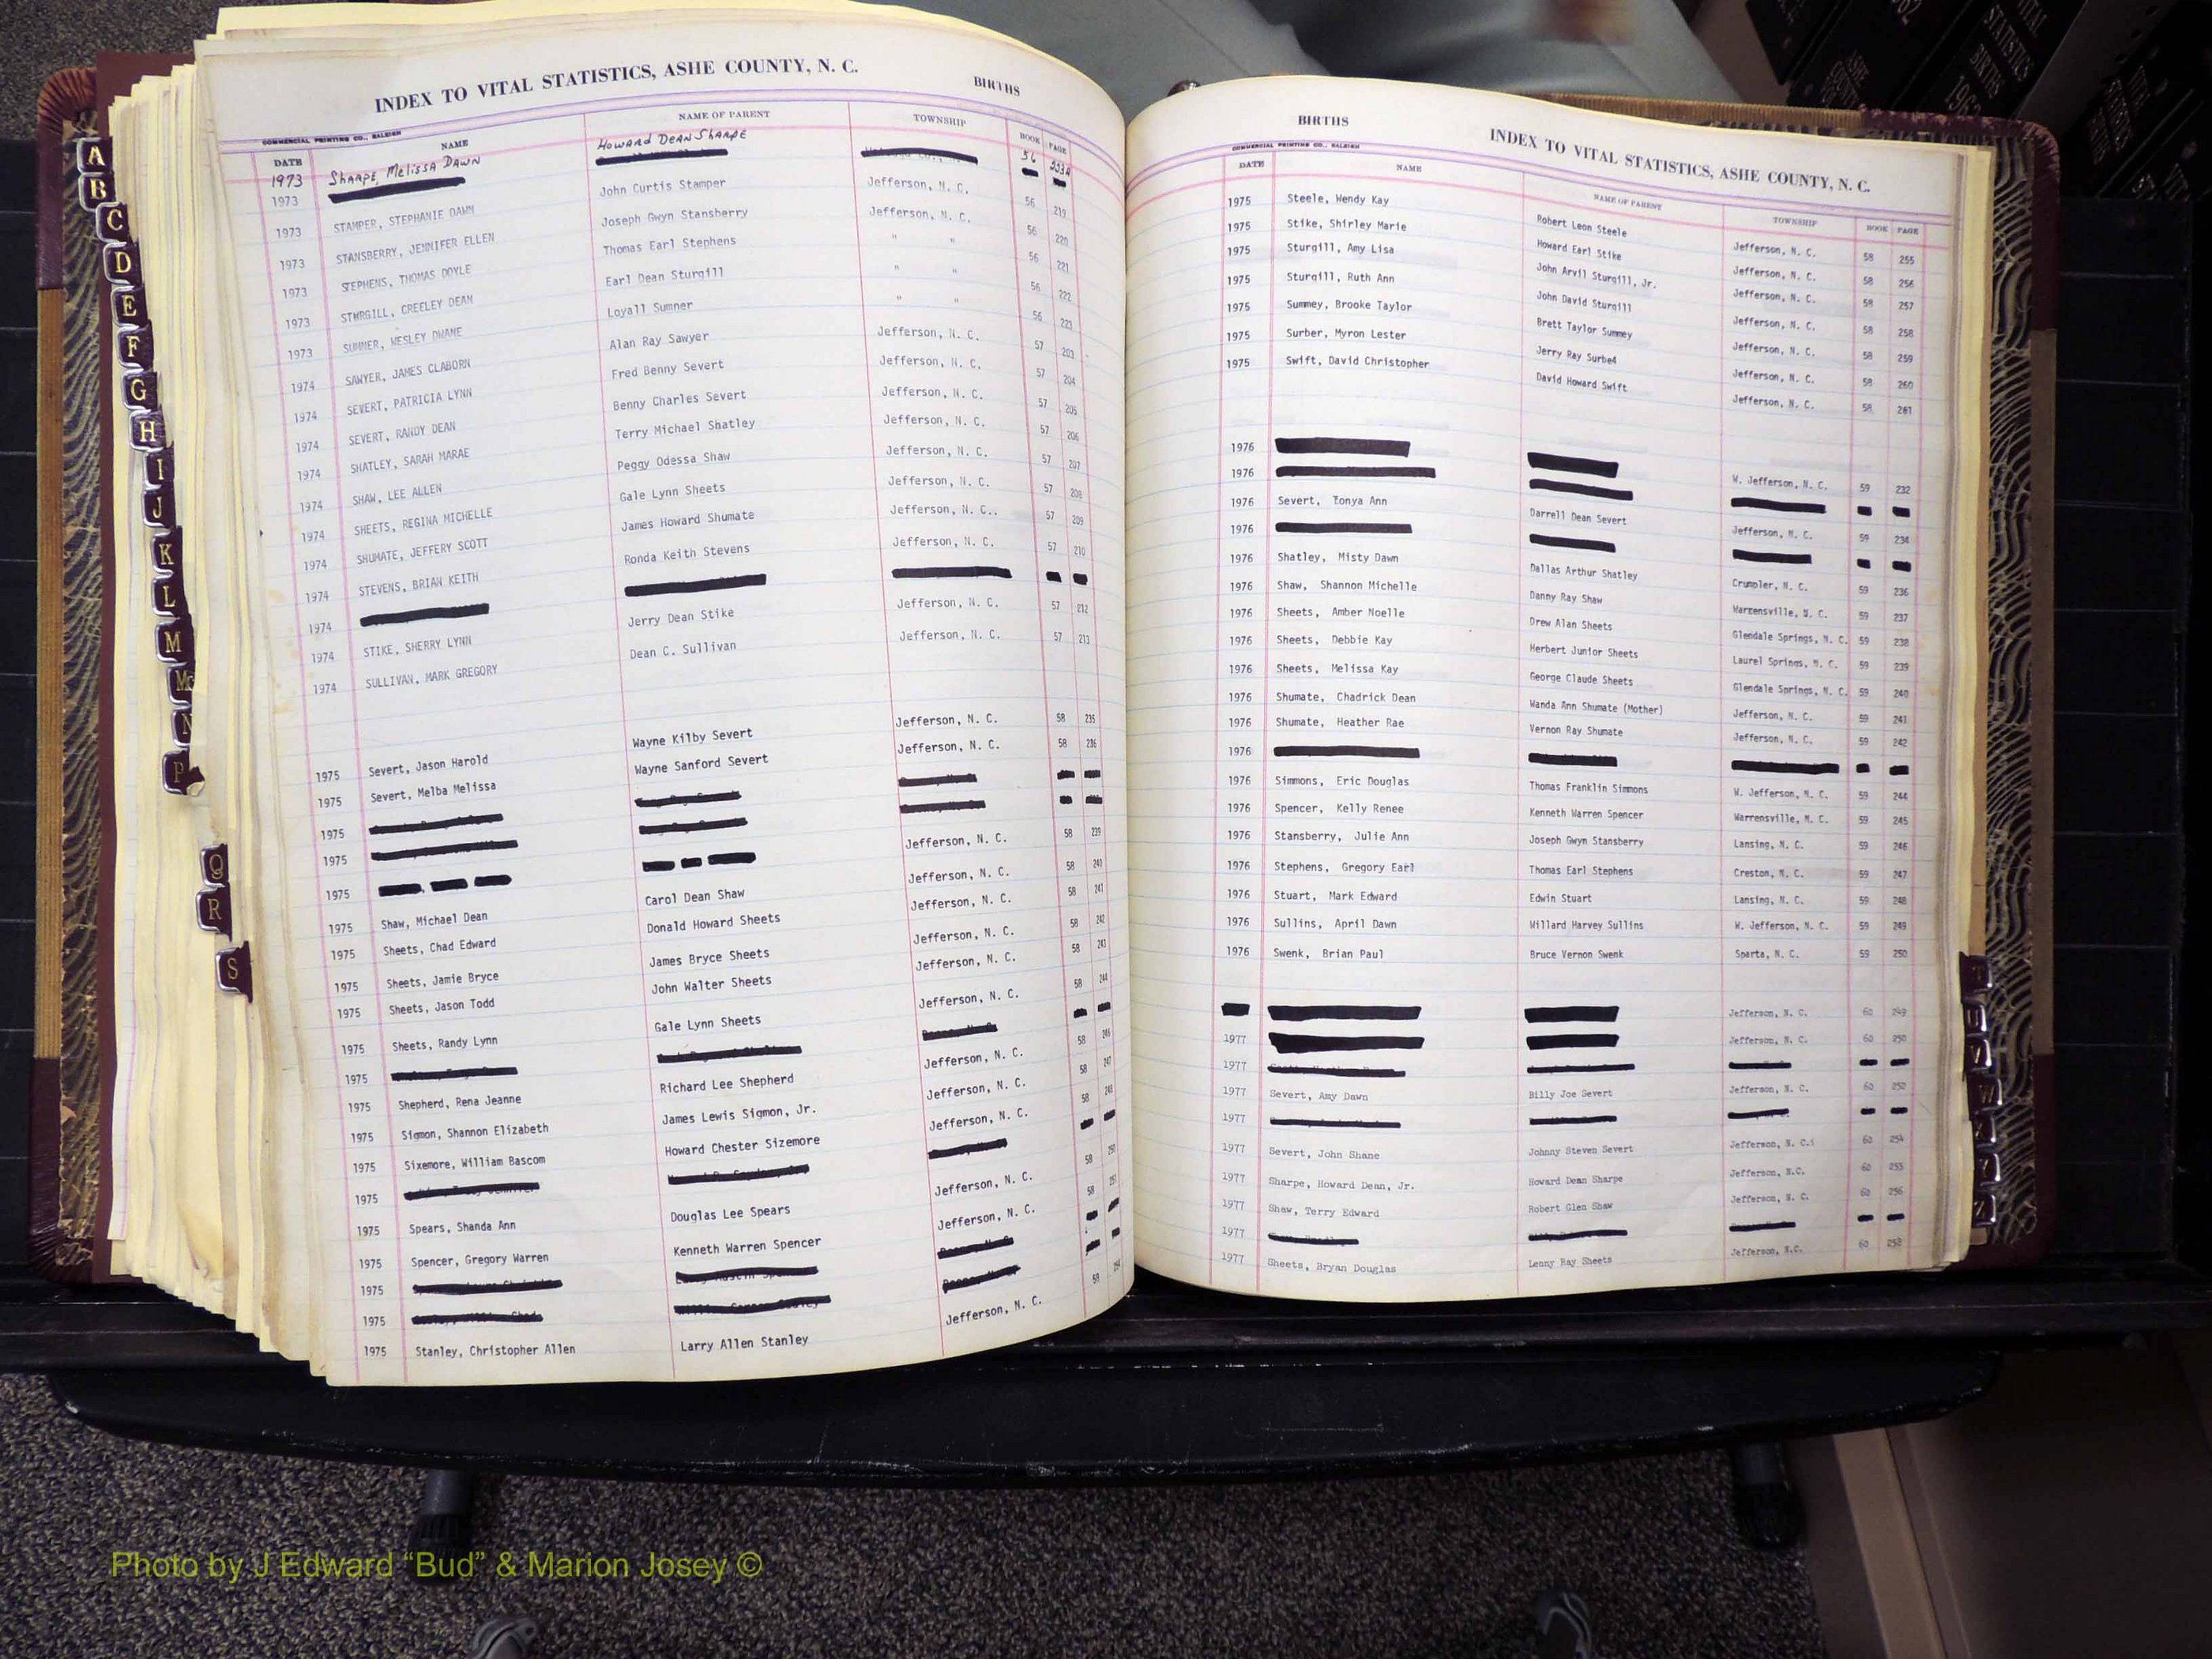 INDEX TO VITAL STATISTICS, ASHE COUNTY, N. C.
BIRTHS
COMMERCIAL PRINTING CO., RALEIGH
DATE NAME NAME OF PARENT TOWNSHIP BOOK PAGE
1973 Sharpe, Melissa Dawn Howard Dean Sharpe 56
1973
1973 STAMPER, STEPHANIE DAWN John Curtis Stamper Jefferson, N. C. 56 219
1973 STANSBERRY, JENNIFER ELLEN Joseph Gwyn Stansberry Jefferson, N. C. 56 220
1973 STEPHENS, THOMAS DOYLE Thomas Earl Stephens " " 56 221
1973 STURGILL, CREELEY DEAN Earl Dean Sturgill " " 56 222
1973 SUMNER, WESLEY DWANE Loyall Sumner " " 56 223
1974 SAWYER, JAMES CLABORN Alan Ray Sawyer Jefferson, N. C. 57 203
1974 SEVERT, PATRICIA LYNN Fred Benny Severt Jefferson, N. C. 57 204
1974 SEVERT, RANDY DEAN Benny Charles Severt Jefferson, N. C. 57 205
1974 SHATLEY, SARAH MARAE Terry Michael Shatley Jefferson, N. C. 57 206
1974 SHAW, LEE ALLEN Peggy Odessa Shaw Jefferson, N. C. 57 207
1974 SHEETS, REGINA MICHELLE Gale Lynn Sheets Jefferson, N. C. 57 208
1974 SHUMATE, JEFFERY SCOTT James Howard Shumate Jefferson, N. C.. 57 209
1974 STEVENS, BRIAN KEITH Ronda Keith Stevens Jefferson, N. C. 57 210
1974
1974 STIKE, SHERRY LYNN Jerry Dean Stike Jefferson, N. C. 57 212
1974 SULLIVAN, MARK GREGORY Dean C. Sullivan Jefferson, N. C. 57 213
1975 Severt, Jason Harold Wayne Kilby Severt Jefferson, N. C. 58 235
1975 Severt, Melba Melissa Wayne Sanford Severt Jefferson, N. C. 58 236
1975
1975
1975 Jefferson, N. C. 58 239
1975 Shaw, Michael Dean Carol Dean Shaw Jefferson, N. C. 58 240
1975 Sheets, Chad Edward Donald Howard Sheets Jefferson, N. C. 58 241
1975 Sheets, Jamie Bryce James Bryce Sheets Jefferson, N. C. 58 242
1975 Sheets, Jason Todd John Walter Sheets Jefferson, N. C. 58 243
1975 Sheets, Randy Lynn Gale Lynn Sheets Jefferson, N. C. 58 244
1975
1975 Shepherd, Rena Jeanne Richard Lee Shepherd Jefferson, N. C. 58 246
1975 Sigmon, Shannon Elizabeth James Lewis Sigmon, Jr. Jefferson, N. C. 58 247
1975 Sixemore, William Bascom Howard Chester Sizemore Jefferson, N. C. 58 248
1975
1975 Spears, Shanda Ann Douglas Lee Spears Jefferson, N. C. 58 250
1975 Spencer, Gregory Warren Kenneth Warren Spencer Jefferson, N. C. 58 251
1975
1975
1975 Stanley, Christopher Allen Larry Allen Stanley Jefferson, N. C. 58 254
BIRTHS
INDEX TO VITAL STATISTICS, ASHE COUNTY, N. C.
COMMERCIAL PRINTING CO., RALEIGH
DATE NAME NAME OF PARENT TOWNSHIP BOOK PAGE
1975 Steele, Wendy Kay Robert Leon Steele Jefferson, N. C. 58 255
1975 Stike, Shirley Marie Howard Earl Stike Jefferson, N. C. 58 256
1975 Sturgill, Amy Lisa John Arvil Sturgill, Jr. Jefferson, N. C. 58 257
1975 Sturgill, Ruth Ann John David Sturgill Jefferson, N. C. 58 258
1975 Summey, Brooke Taylor Brett Taylor Summey Jefferson, N. C. 58 259
1975 Surber, Myron Lester Jerry Ray Jefferson, N. C. 58 260
1975 Swift, David Christopher David Howard Swift Jefferson, N. C. 58 261
1976 W. Jefferson, N. C. 59 232
1976
1976 Severt, Tonya Ann Darrell Dean Severt Jefferson, N. C. 59 234
1976
1976 Shatley, Misty Dawn Dallas Arthur Shatley Crumpler, N. C. 59 236
1976 Shaw, Shannon Michelle Danny Ray Shaw Warrensville, N. C. 59 237
1976 Sheets, Amber Noelle Drew Alan Sheets Glendale Springs, N. C. 59 238
1976 Sheets, Debbie Kay Herbert Junior Sheets Laurel Springs, N. C. 59 239
1976 Sheets, Melissa Kay George Claude Sheets Glendale Springs, N. C. 59 240
1976 Shumate, Chadrick Dean Wanda Ann Shumate (Mother) Jefferson, N. C. 59 241
1976 Shumate, Heather Rae Vernon Ray Shumate Jefferson, N. C. 59 242
1976
1976 Simmons, Eric Douglas Thomas Franklin Simmons W. Jefferson, N. C. 59 244
1976 Spencer, Kelly Renee Kenneth Warren Spencer Warrensville, N. C. 59 245
1976 Stansberry, Julie Ann Joseph Gwyn Stansberry Lansing, N. C. 59 246
1976 Stephens, Gregory Earl Thomas Earl Stephens Creston, N. C. 59 247
1976 Stuart, Mark Edward Edwin Stuart Lansing, N. C. 59 248
1976 Sullins, April Dawn Willard Harvey Sullins W. Jefferson, N. C. 59 249
1976 Swenk, Brian Paul Bruce Vernon Swenk Sparta, N. C. 59 250
Jefferson, N. C. 60 249
1977 Jefferson, N. C. 60 250
1977
1977 Severt, Amy Dawn Billy Joe Severt Jefferson, N. C. 60
1977
1977 Severt, John Shane Johnny Steven Severt Jefferson, N. C. 60 254
1977 Sharpe, Howard Dean, Jr. Howard Dean Sharpe Jefferson, N.C. 60 255
1977 Shaw, Terry Edward Robert Glen Shaw Jefferson, N. C. 60 256
1977
1977 Sheets, Bryan Douglas Lenny Ray Sheets Jefferson, N.C. 60 258
A
B
C
D
E
F
G
H
I
J
K
L
M
Mc
N
P
Q
R
S
T
U
V
W
Y
Z
VITAL STATISTICS BIRTHS
ASHE
Photo by J Edward “Bud” & Marion Josey ©